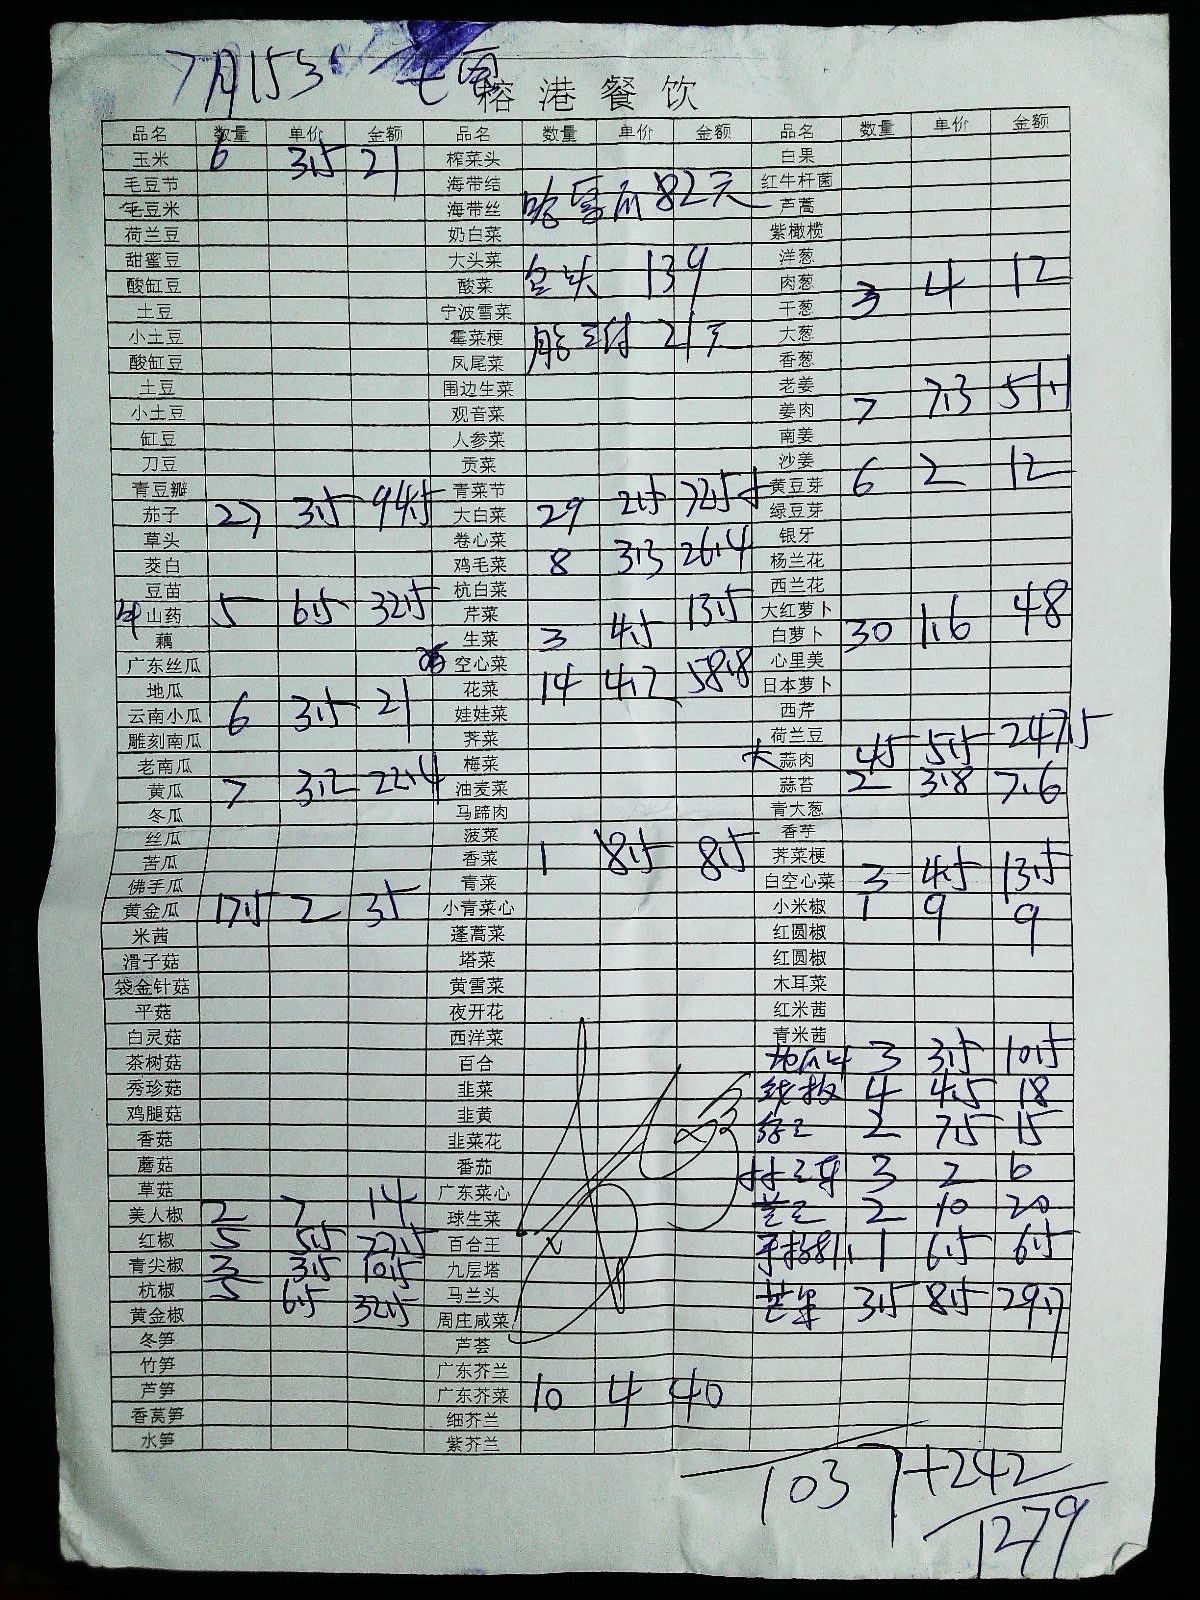 7月15日
榕港餐饮
品名 数量 单价 金额 品名 数量 单价 金额 品名 数量 单价 金额
玉米 6 3.5 21 榨菜头 白果
毛豆节 海带结 红牛杆菌
毛豆米 海带丝 82元 芦蒿
荷兰豆 奶白菜 紫橄榄
甜蜜豆 大头菜 洋葱
酸缸豆 酸菜 139 肉葱 3 4 12
土豆 宁波雪菜 干葱
小土豆 霉菜梗 21元 大葱
酸缸豆 凤尾菜 香葱
土豆 围边生菜 老姜
小土豆 观音菜 姜肉 7 7.3 51.1
缸豆 人参菜 南姜
刀豆 贡菜 沙姜
青豆瓣 青菜节 黄豆芽 6 2 12
茄子 27 3.5 94.5 大白菜 29 2.5 72.5 绿豆芽
草头 卷心菜 银牙
茭白 鸡毛菜 8 3.3 26.4 杨兰花
豆苗 杭白菜 西兰花
山药 5 6.5 32.5 芹菜 大红萝卜
藕 生菜 3 4.5 13.5 白萝卜 30 1.6 48
广东丝瓜 空心菜 心里美
地瓜 花菜 14 4.2 58.8 日本萝卜
云南小瓜 6 3.5 21 娃娃菜 西芹
雕刻南瓜 荠菜 荷兰豆
老南瓜 梅菜 大蒜肉 45 5.5 247.5
黄瓜 7 3.2 22.4 油麦菜 蒜苔 2 3.8 7.6
冬瓜 马蹄肉 青大葱
丝瓜 菠菜 香芋
苦瓜 香菜 1 8.5 8.5 荠菜梗
佛手瓜 青菜 白空心菜 3 4.5 13.5
黄金瓜 17.5 2 35 小青菜心 小米椒 1 9 9
米茜 蓬蒿菜 红圆椒
滑子菇 塔菜 红圆椒
袋金针菇 黄雪菜 木耳菜
平菇 夜开花 红米茜
白灵菇 西洋菜 青米茜
茶树菇 百合 3 3.5 10.5
秀珍菇 韭菜 线椒 4 4.5 18
鸡腿菇 韭黄 2 7.5 15
香菇 韭菜花
蘑菇 番茄 3 2 6
草菇 广东菜心 2 10 20
美人椒 2 7 14 球生菜
红椒 5 5.5 27.5 百合王 1 6.5 6.5
青尖椒 3 3.5 10.5 九层塔
杭椒 5 6.5 32.5 马兰头 芒果 3.5 8.5 29.7
黄金椒 周庄咸菜
冬笋 芦荟
竹笋 广东芥兰
芦笋 广东芥菜 10 4 40
香莴笋 细芥兰
水笋 紫芥兰
1037+242
1279